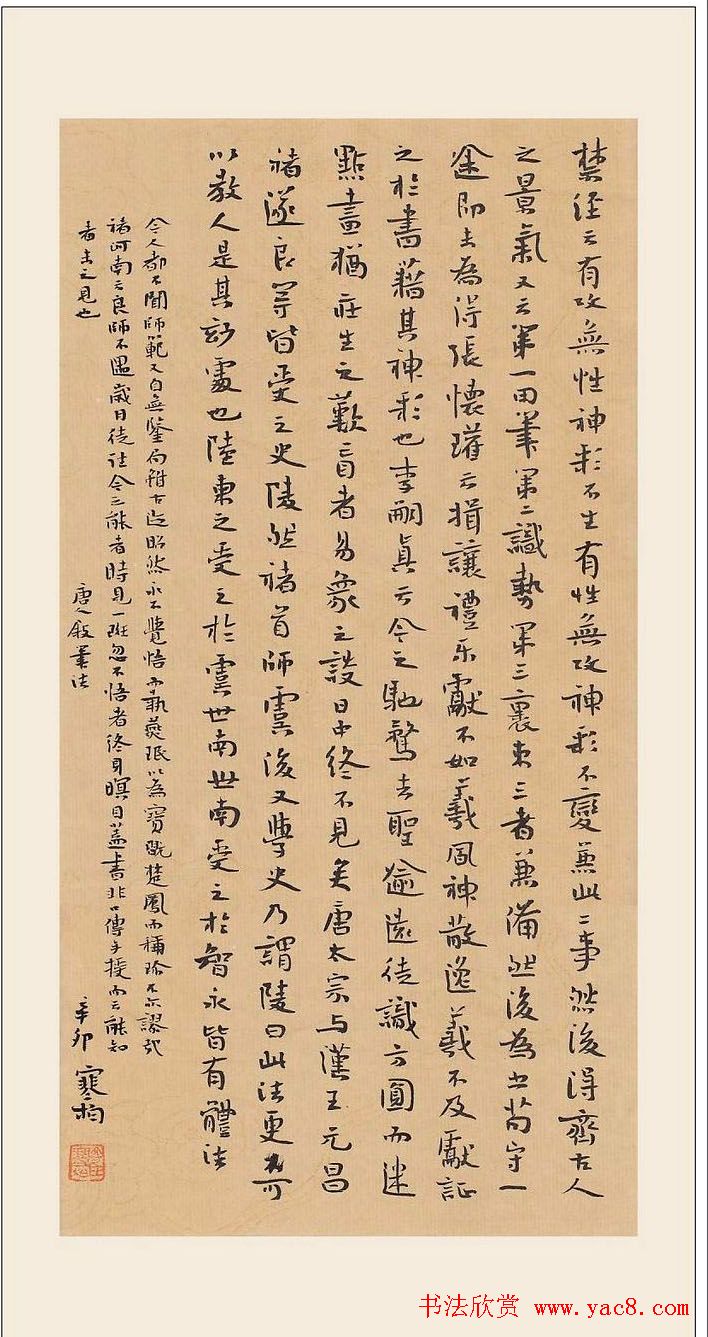 禁經云有攻無性神彩不生有性無攻神彩不變兼此二事然後得齊古人
之景氣又云第一用筆第二識勢第三裹束三者兼備然後為書苟守一
途即去為得張懷瓘云揖讓禮樂獻不如羲風神散逸羲不及獻証
之於書藉其神彩也李嗣真云今之馳騖去聖逾遠徒識方圓而迷
點畫猶莊生之歎盲者易象之設日中終不見矣唐太宗与漢王元昌
褚遂良等皆受之史陵然褚首師虞後又學史乃謂陵曰此法更不可
以教人是其妙處也陸柬之受之於虞世南世南受之於智永皆有體法
今人都不聞師範又自無鑒向雖古迹昭然永不覺悟而執燕珉以為寶翫楚鳳而稱珍不亦謬哉
褚河南云良師不遇歲月徒往今之能者時見一斑忽不悟者終身暝目蓋書非口傳手授而云能知
者未之見也
唐人敘筆法
辛卯 寒柏
书法欣赏 www.yac8.com